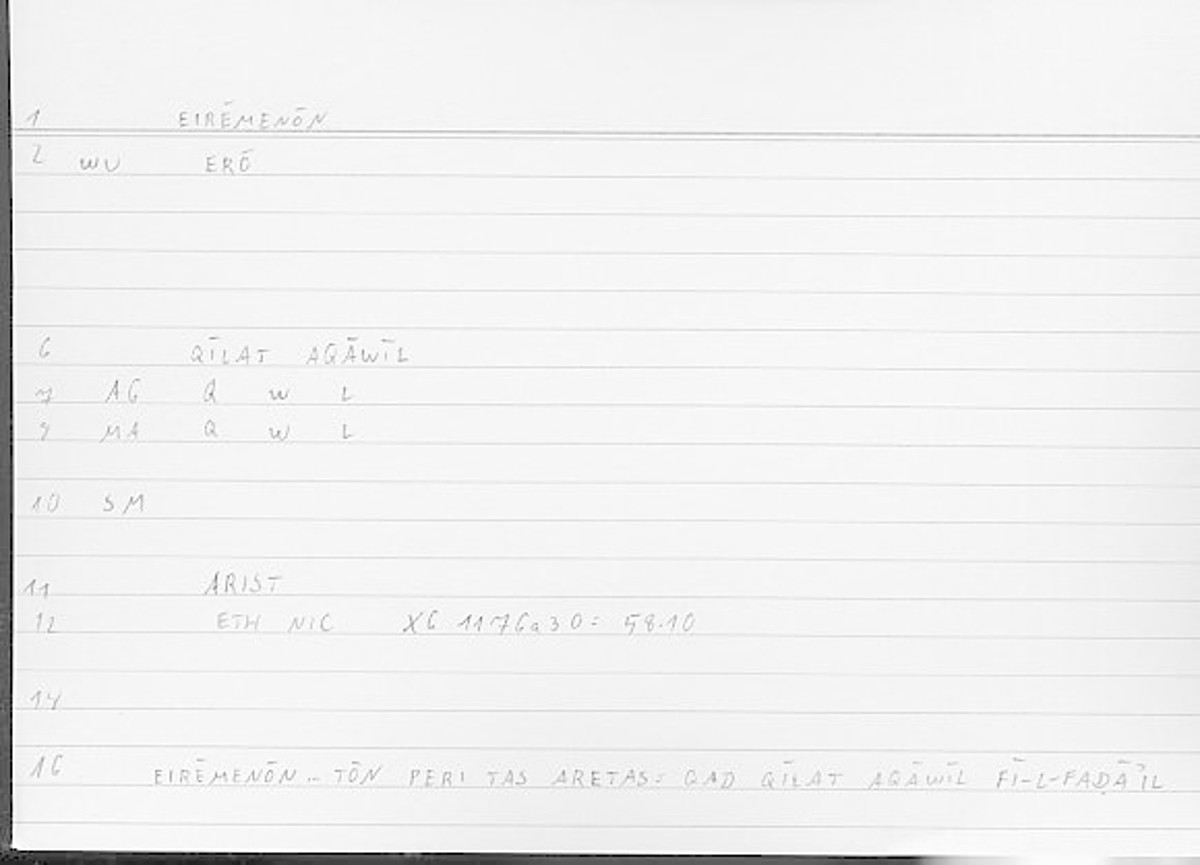 1 EIRĒMENŌN
2 WU ERŌ
6 QĪLAT AQĀWĪL
7 AG Q W L
9 MA Q W L
10 SM
11 ARIST
12 ETH NIC X6 1176a30= 58.10
14
16 EIRĒMENŌN .. TŌN PERI TAS ARETAS= QAD QĪLAT AQĀWĪL FĪ-L-FAḌĀʾIL